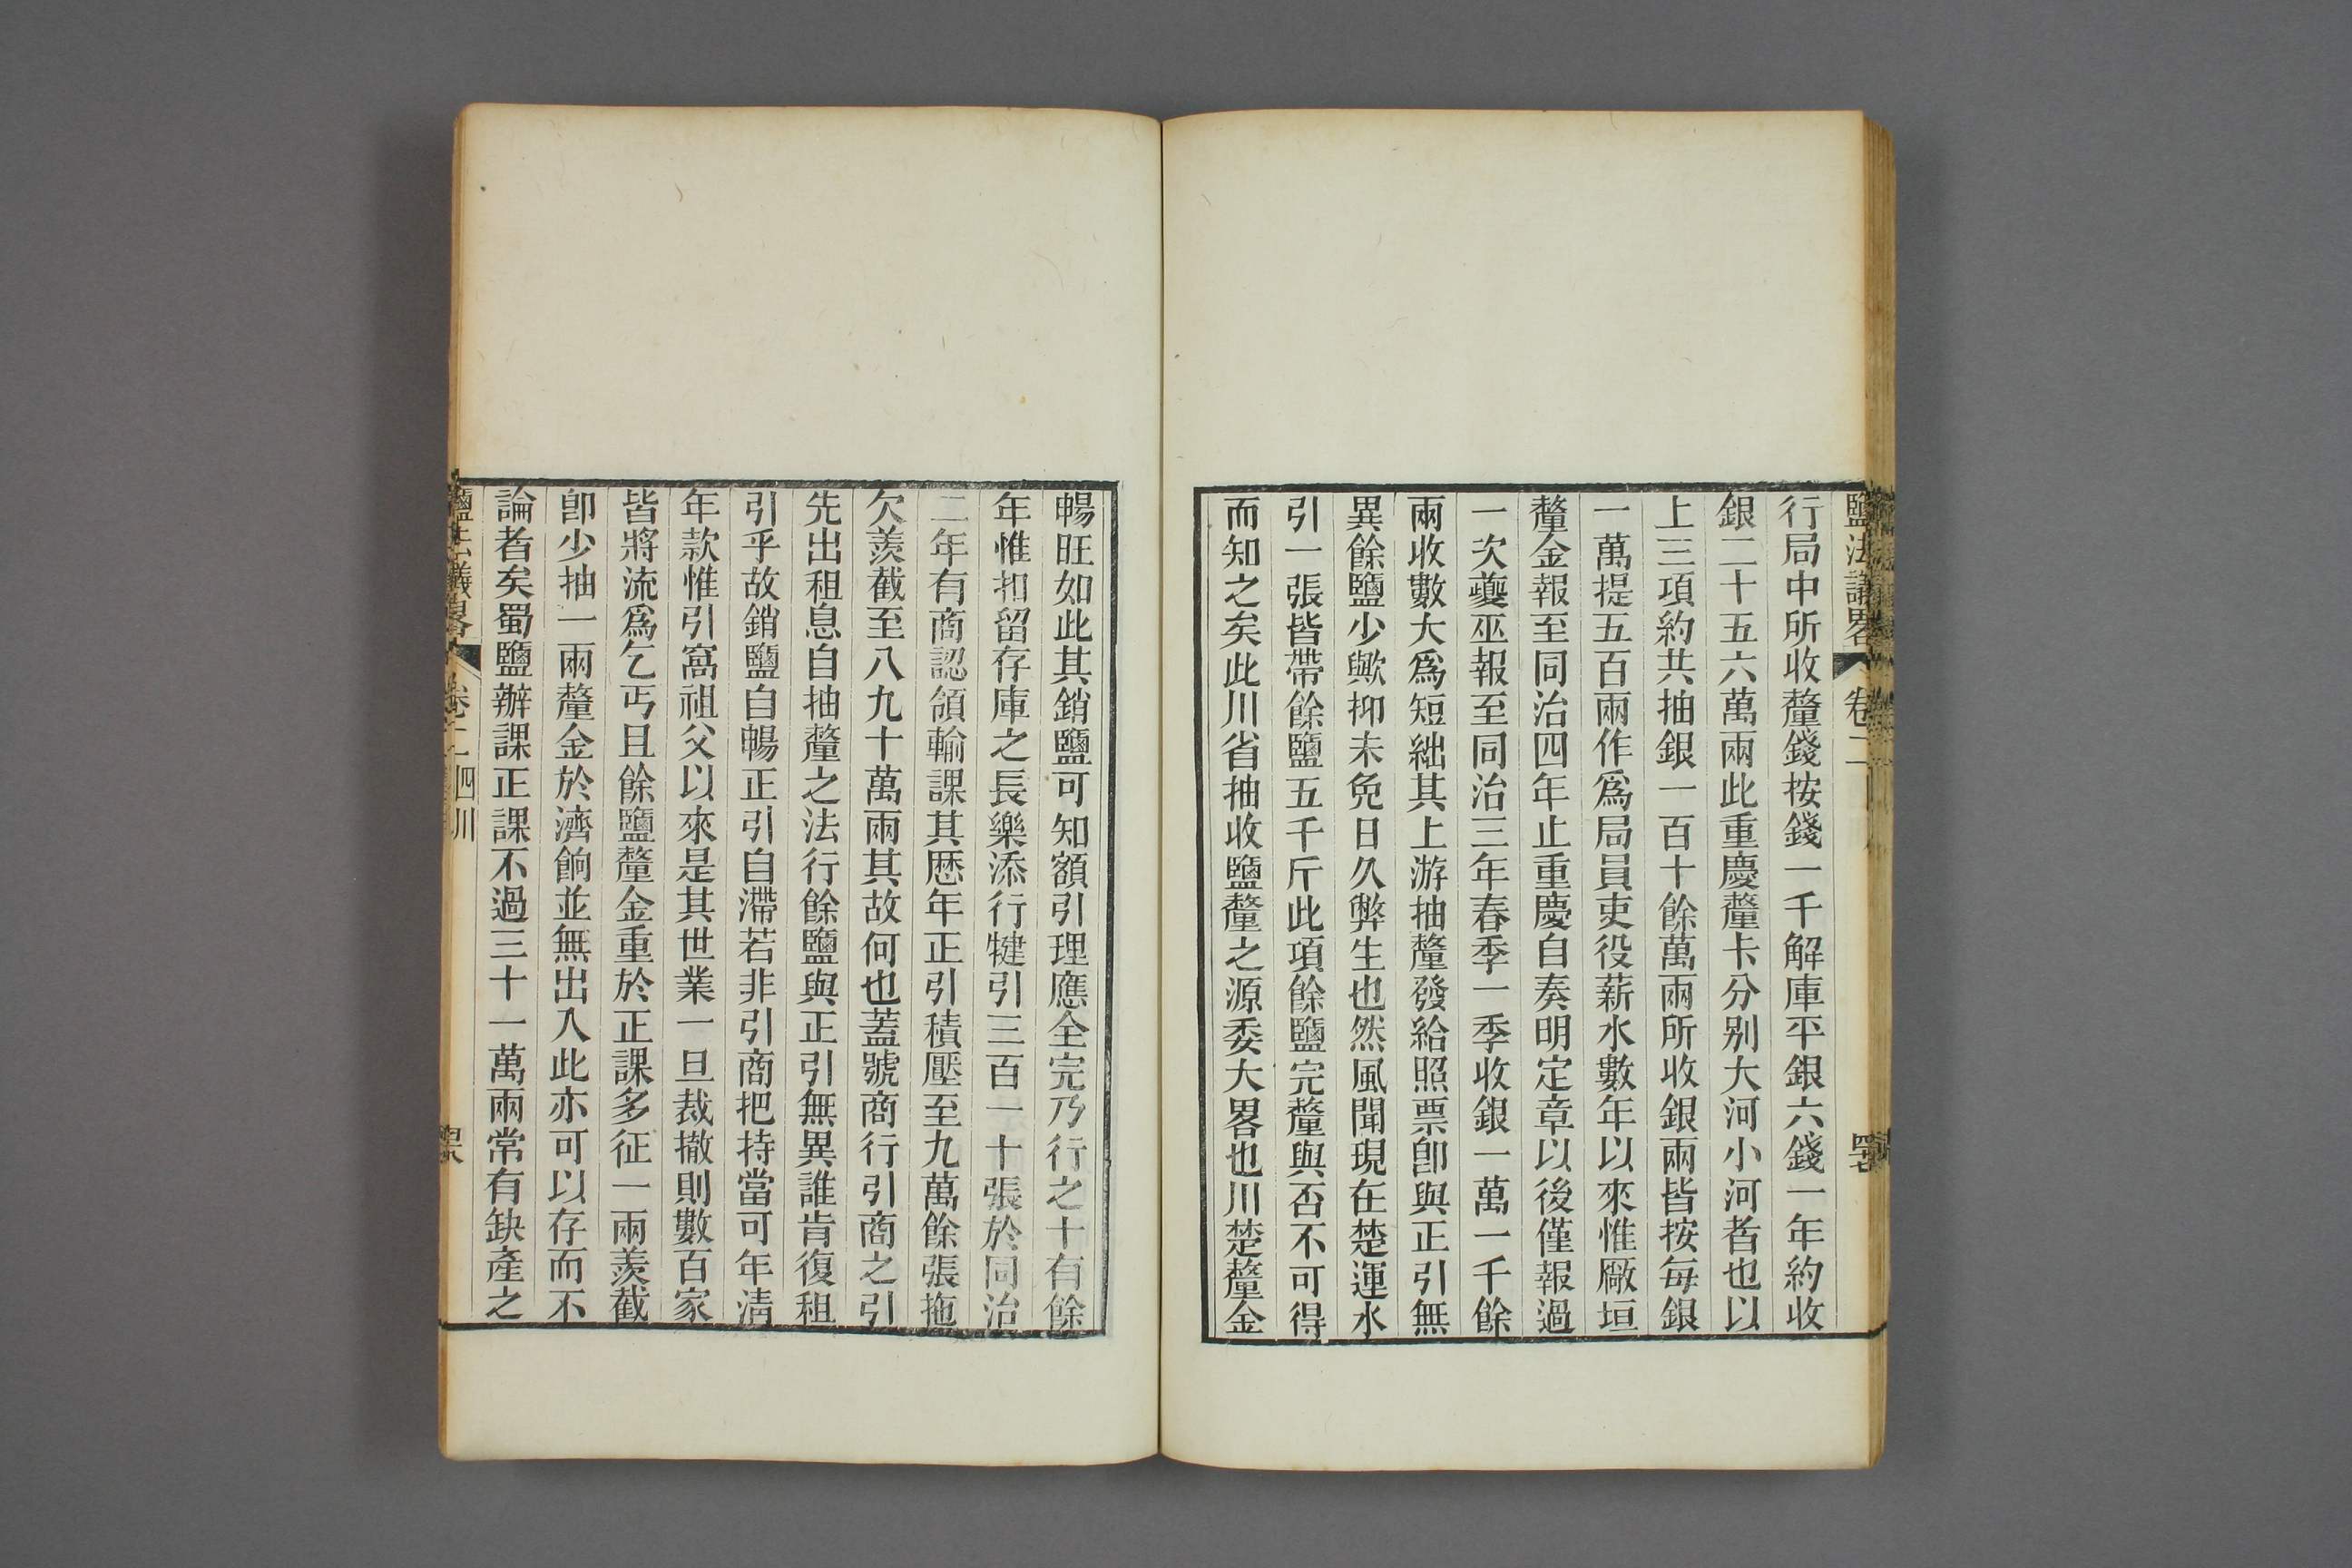 鹽法議畧 卷二 四十七
行局中所收釐錢按錢一千解庫平銀六錢一年約收
銀二十五六萬兩此重慶釐卡分别大河小河者也以
上三項約共抽銀一百十餘萬兩所收銀兩皆按每銀
一萬提五百兩作爲局員吏役薪水數年以來惟厰垣
釐金報至同治四年止重慶自奏明定章以後僅報過
一次夔巫報至同治三年春季一季收銀一萬一千餘
兩收數大爲短絀其上游抽釐發給照票卽與正引無
異餘鹽少歟抑未免日久弊生也然風聞現在楚運水
引一張皆帶餘鹽五千斤此項餘鹽完釐與否不可得
而知之矣此川省抽收鹽釐之源委大畧也川楚釐金
暢旺如此其銷鹽可知額引理應全完乃行之十有餘
年惟扣留存庫之長樂添行犍引三百一十張於同治
二年有商認領輸課其歷年正引積壓至九萬餘張拖
欠羨截至八九十萬兩其故何也蓋號商行引商之引
先出租息自抽釐之法行餘鹽與正引無異誰肯復租
引乎故銷鹽自暢正引自滯若非引商把持當可年清
年款惟引窩祖父以來是其世業一旦裁撤則數百家
皆將流爲乞丐且餘鹽釐金重於正課多征一兩羨截
卽少抽一兩釐金於濟餉並無出入此亦可以存而不
論者矣蜀鹽辦課正課不過三十一萬兩常有缺產之
鹽法議畧 卷二 四川 四十八